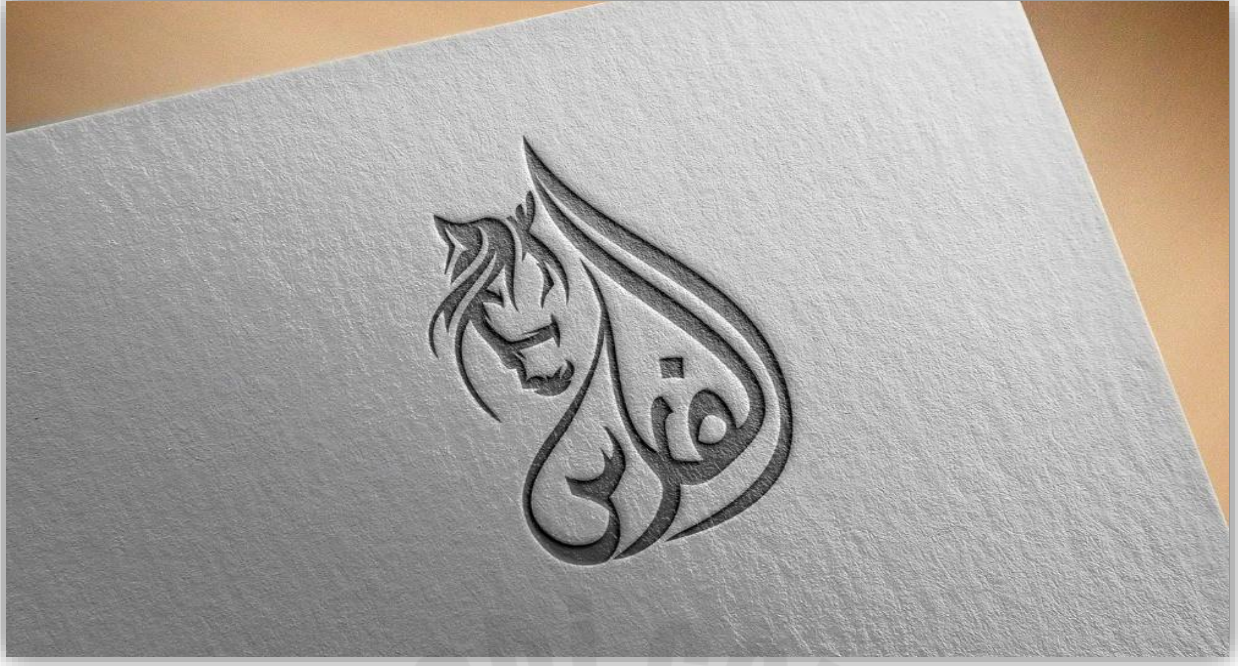 الفرس